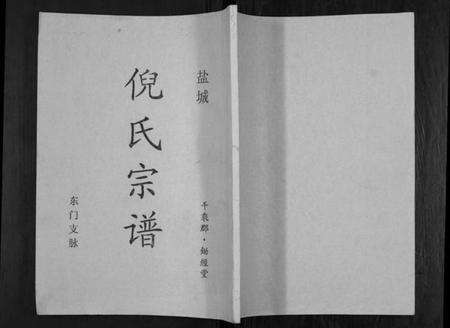 盐城
倪氏宗谱
千乘郡·锄经堂
东门支脉